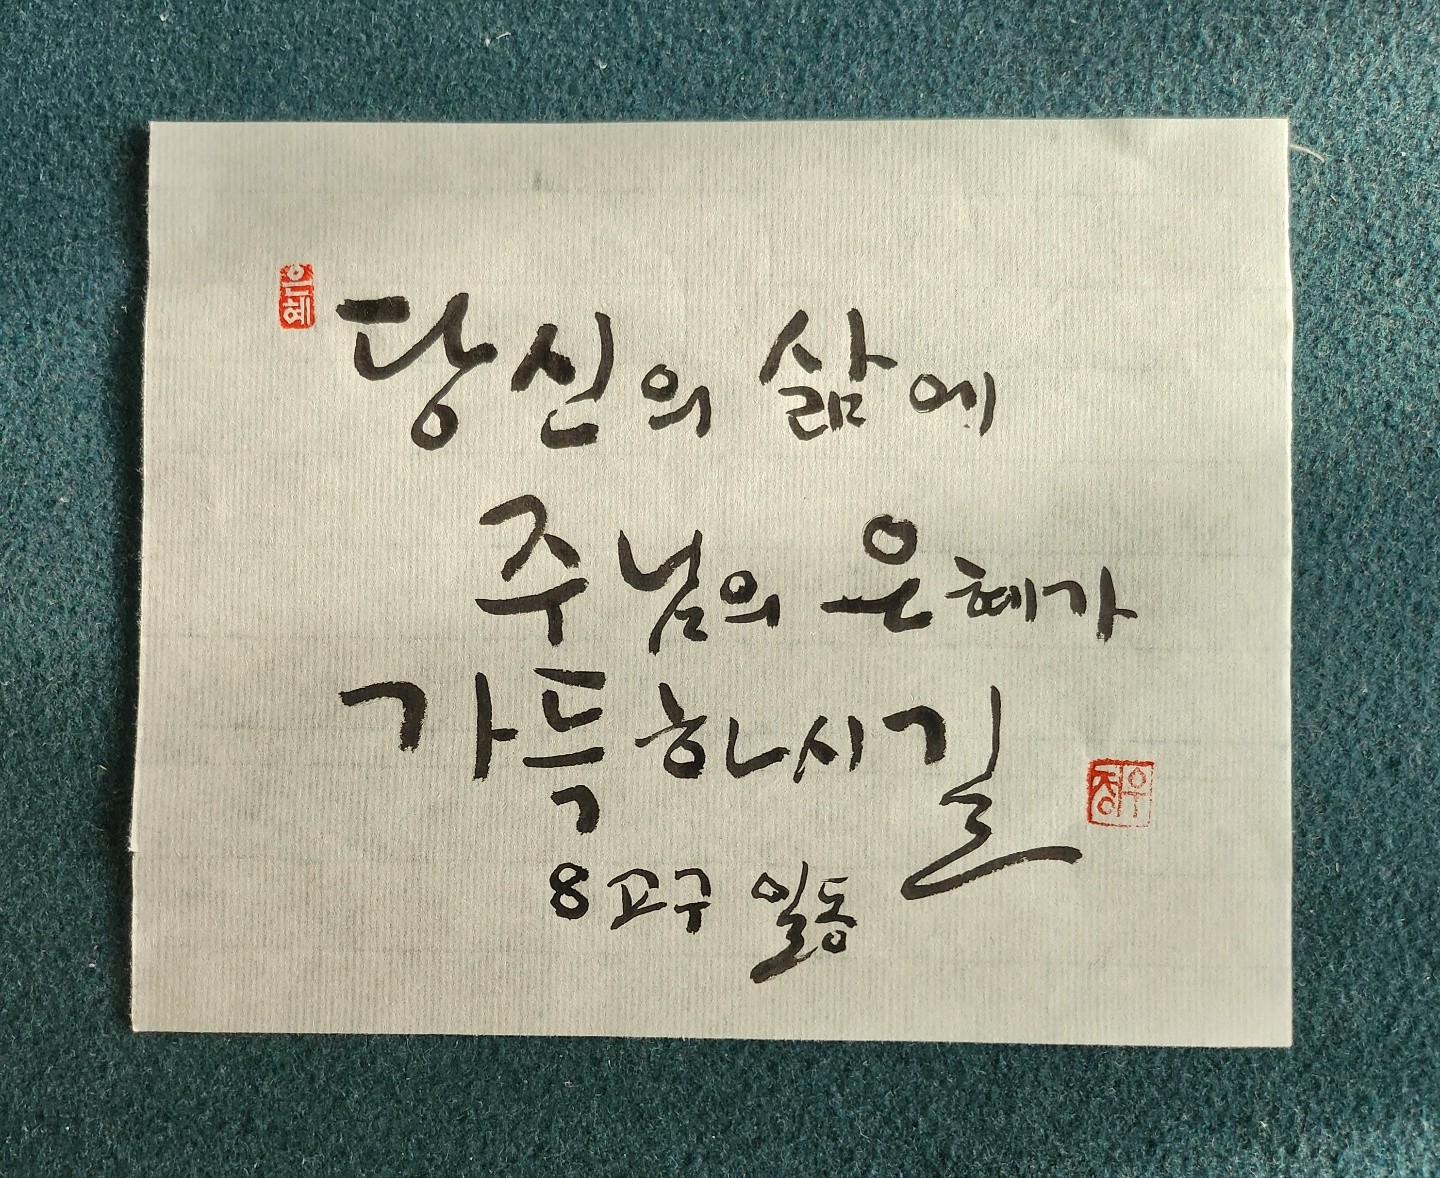 은혜
당신의 삶에
주님의 은혜가
가득하시길
정우
8교구 일동